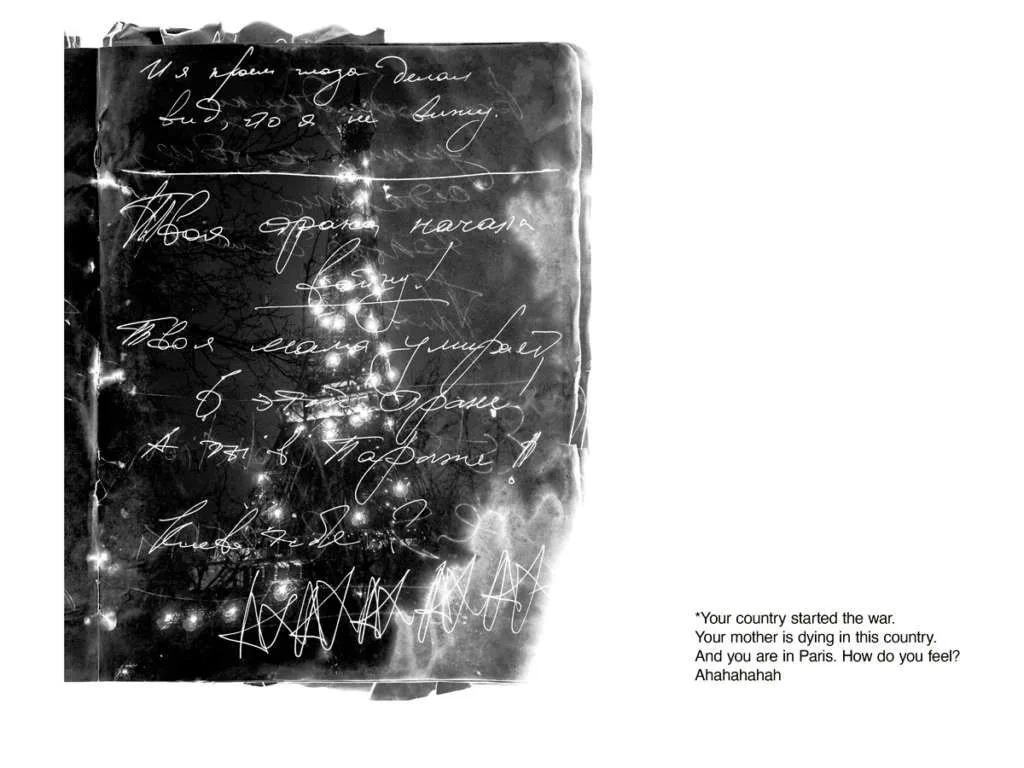 И я кроем глаза делал
вид, что я не вижу.
Твоя страна начала
войну!
Твоя мама умирает
в этой стране
А ты в Париже!!
Каково тебе?
АХАХАХАХАХ
*Your country started the war.
Your mother is dying in this country.
And you are in Paris. How do you feel?
Ahahahahah